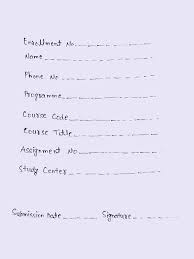 Enrollment No.
Name
Phone No.
Programme
Course Code
Course Title
Assignment No
Study Center
Submission Date Signature